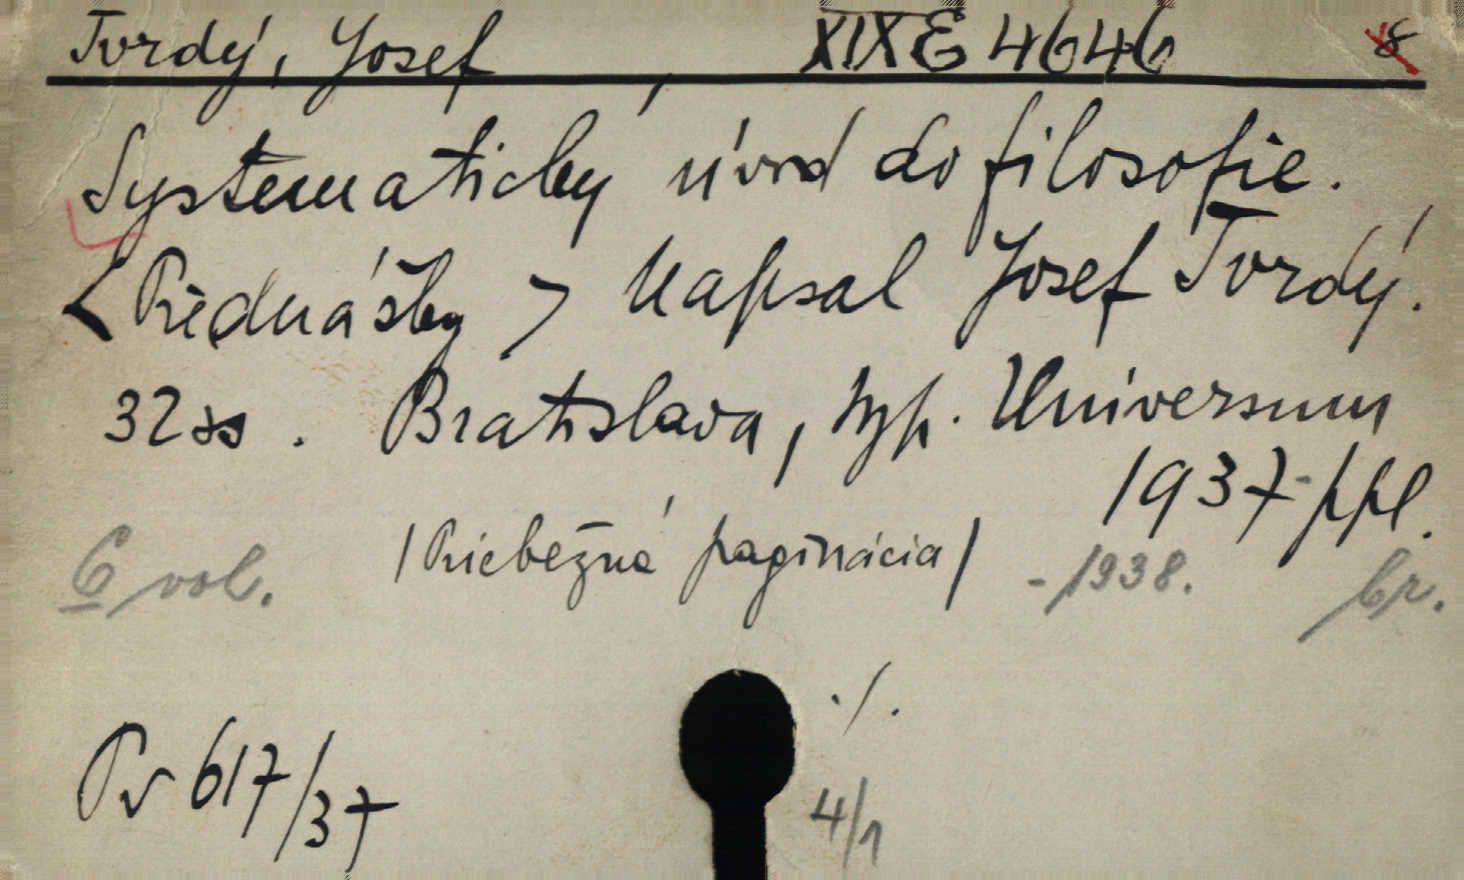 Tvrdý, Josef, XIX E 4646 8
Systematický úvod do filosofie.
<Přednášky> Napsal Josef Tvrdý.
32 ss. Bratislava, typ. Universum
1937- ppl.
6 vol. /Priebežná paginácia/ -1938. br.
./.
Pv 617/37
4/1